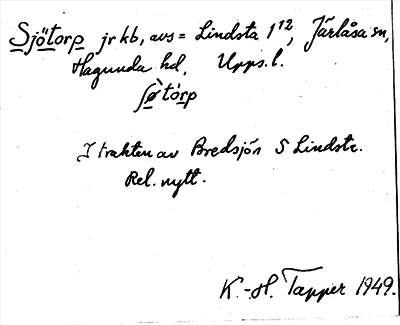 Sjötorp jr kb, avs = Lindsta 1¹², Järlåsa sn,
Hagunda hd, Upps. l.
ʃø̀tórp
I trakten av Bredsjön S Lindsta.
Rel. nytt.
K.-H. Tapper 1949.